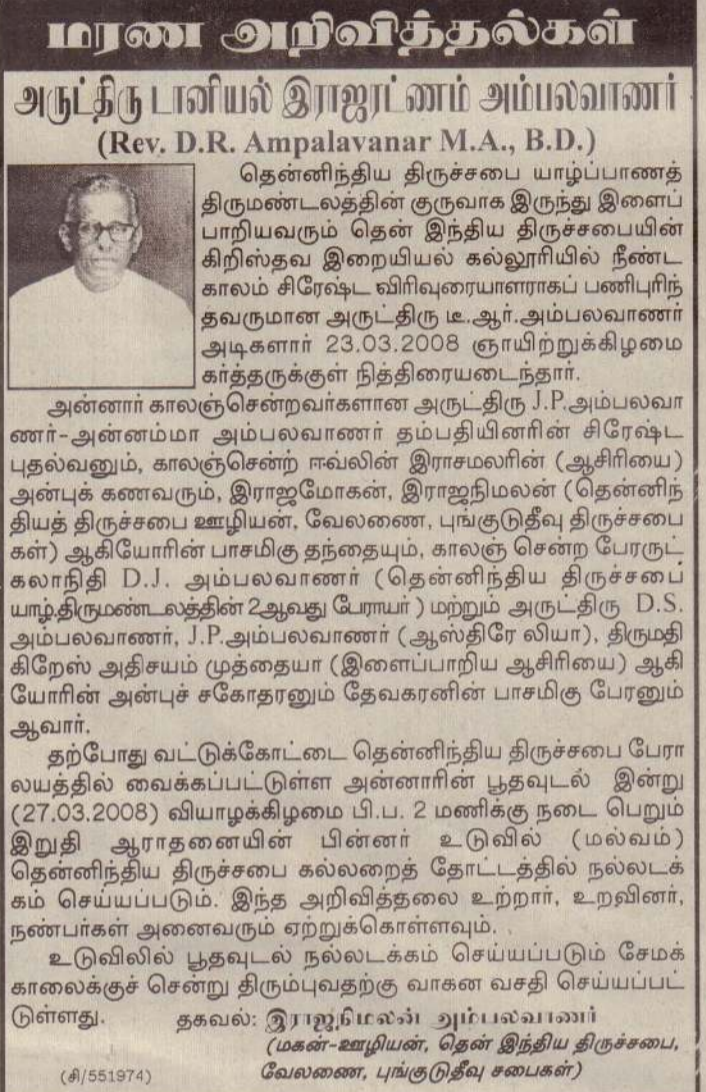 மரண அறிவித்தல்கள்
அருட்திரு டானியல் இராஜரட்ணம் அம்பலவாணர்
(Rev. D.R. Ampalavanar M.A., B.D.)
தென்னிந்திய திருச்சபை யாழ்ப்பாணத்
திருமண்டலத்தின் குருவாக இருந்து இளைப்
பாறியவரும் தென் இந்திய திருச்சபையின்
கிறிஸ்தவ இறையியல் கல்லூரியில் நீண்ட
காலம் சிரேஷ்ட விரிவுரையாளராகப் பணிபுரிந்
தவருமான அருட்திரு டீ.ஆர்.அம்பலவாணர்
அடிகளார் 23.03.2008 ஞாயிற்றுக்கிழமை
கர்த்தருக்குள் நித்திரையடைந்தார்.
அன்னார் காலஞ்சென்றவர்களான அருட்திரு J.P.அம்பலவா
ணர்-அன்னம்மா அம்பலவாணர் தம்பதியினரின் சிரேஷ்ட
புதல்வனும், காலஞ்சென்ற் ஈவ்லின் இராசமலரின் (ஆசிரியை)
அன்புக் கணவரும், இராஜமோகன், இராஜநிமலன் (தென்னிந்
தியத் திருச்சபை ஊழியன், வேலணை, புங்குடுதீவு திருச்சபை
கள்) ஆகியோரின் பாசமிகு தந்தையும், காலஞ் சென்ற பேரருட்
கலாநிதி D.J. அம்பலவாணர் (தென்னிந்திய திருச்சபை
யாழ்.திருமண்டலத்தின் 2ஆவது பேராயர் ) மற்றும் அருட்திரு D.S.
அம்பலவாணர், J.P.அம்பலவாணர் (ஆஸ்திரே லியா), திருமதி
கிறேஸ் அதிசயம் முத்தையா (இளைப்பாறிய ஆசிரியை) ஆகி
யோரின் அன்புச் சகோதரனும் தேவகரனின் பாசமிகு பேரனும்
ஆவார்.
தற்போது வட்டுக்கோட்டை தென்னிந்திய திருச்சபை பேரா
லயத்தில் வைக்கப்பட்டுள்ள அன்னாரின் பூதவுடல் இன்று
(27.03.2008) வியாழக்கிழமை பி.ப. 2 மணிக்கு நடை பெறும்
இறுதி ஆராதனையின் பின்னர் உடுவில் (மல்வம்)
தென்னிந்திய திருச்சபை கல்லறைத் தோட்டத்தில் நல்லடக்
கம் செய்யப்படும். இந்த அறிவித்தலை உற்றார், உறவினர்,
நண்பர்கள் அனைவரும் ஏற்றுக்கொள்ளவும்.
உடுவிலில் பூதவுடல் நல்லடக்கம் செய்யப்படும் சேமக்
காலைக்குச் சென்று திரும்புவதற்கு வாகன வசதி செய்யப்பட்
டுள்ளது. தகவல்: இராஜநிமலன் அம்பலவாணர்
(மகன்-ஊழியன், தென் இந்திய திருச்சபை,
(சி/551974) வேலணை, புங்குடுதீவு சபைகள்)